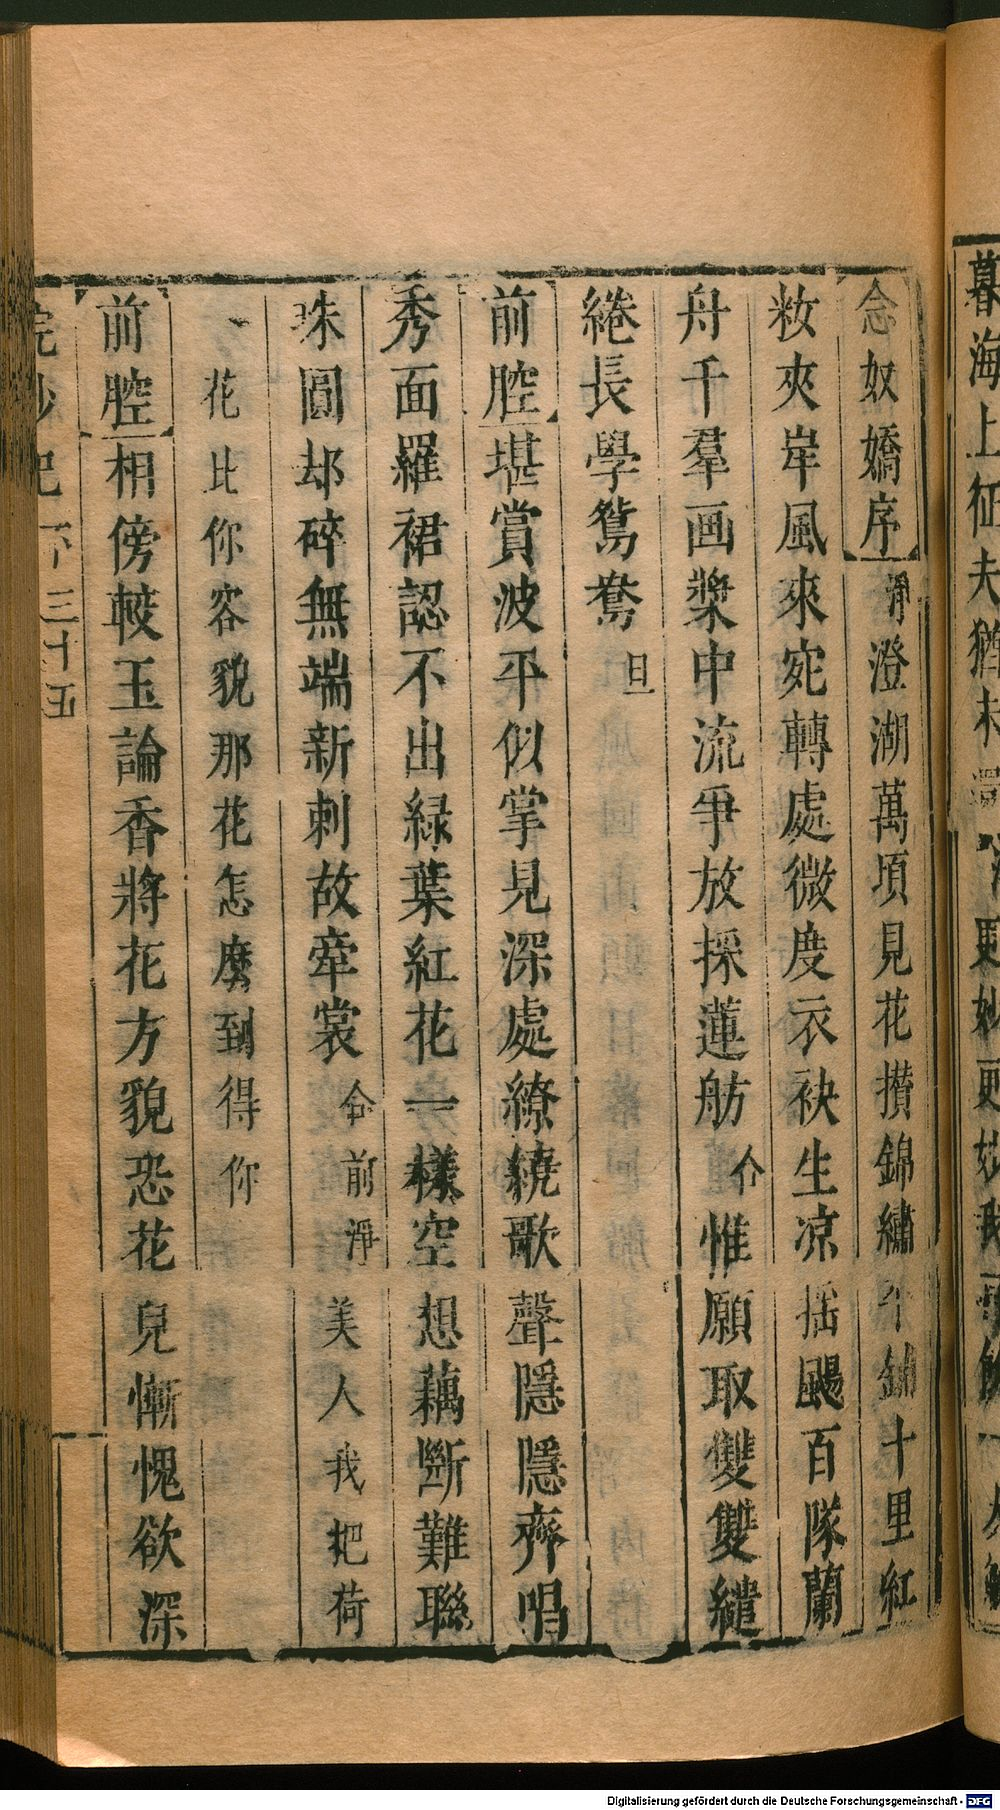 暮海上征夫猶未還
更妙更妙我
念奴嬌序淨澄湖萬頃見花攢錦繡平鋪十里紅
妝夾岸風來宛轉處微度衣袂生凉揺颺百隊蘭
舟千羣画槳中流爭放採蓮舫合惟願取雙雙繾
綣長學鴛鴦旦
前腔堪賞波平似掌見深處繚繞歌聲隱隱齊唱
秀面羅裙認不出綠葉紅花一樣空想藕斷難聯
珠圓却碎無端新刺故牽裳合前淨美人我把荷
花比你容貌那花怎麼到得你
前腔相傍較玉論香將花方貌恐花兒慚愧欲深
浣紗記下三十五
Digitalisierung gefördert durch die Deutsche Forschungsgemeinschaft - DFG